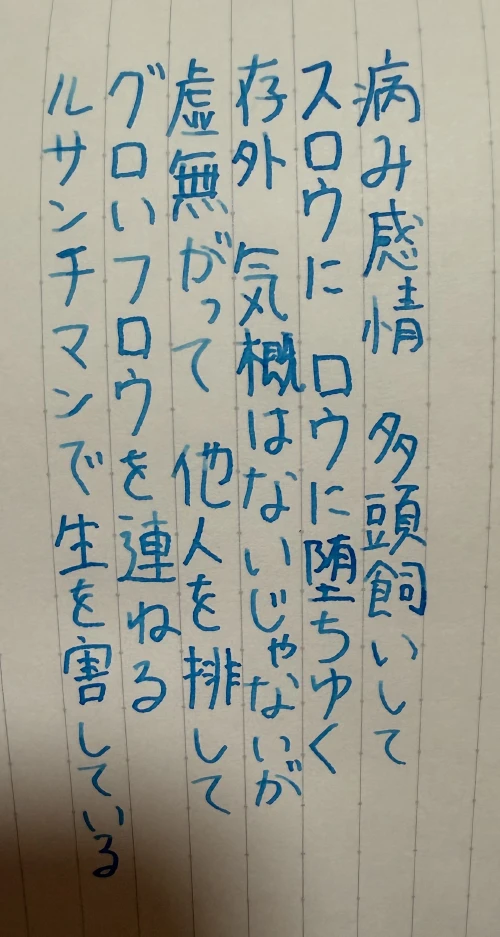 病み感情　多頭飼いして
スロウに　ロウに堕ちゆく
存外　気概はないじゃないが
虚無がって　他人を排して
グロいフロウを連ねる
ルサンチマンで生を害している